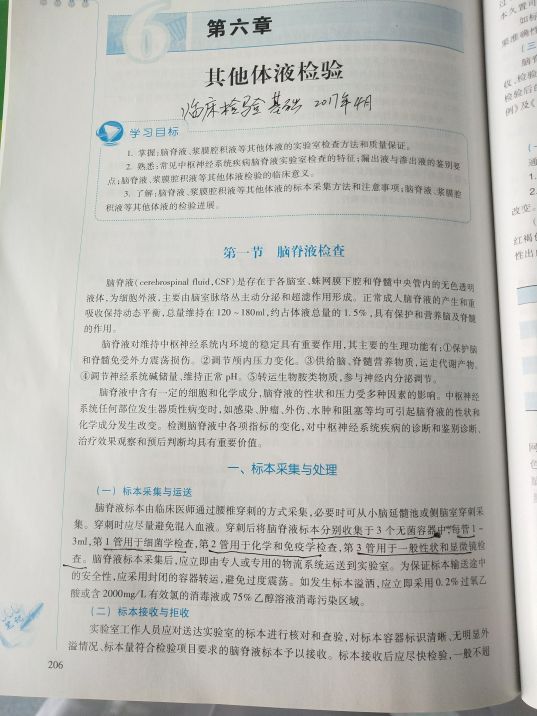 6
第六章
其他体液检验
临床检验基础 2017年4月
学习目标
1. 掌握:脑脊液、浆膜腔积液等其他体液的实验室检查方法和质量保证。
2. 熟悉:常见中枢神经系统疾病脑脊液实验室检查的特征;漏出液与渗出液的鉴别要
点;脑脊液、浆膜腔积液等其他体液检验的临床意义。
3. 了解:脑脊液、浆膜腔积液等其他体液的标本采集方法和注意事项;脑脊液、浆膜腔
积液等其他体液的检验进展。
第一节 脑脊液检查
脑脊液(cerebrospinal fluid,CSF)是存在于各脑室、蛛网膜下腔和脊髓中央管内的无色透明
液体,为细胞外液,主要由脑室脉络丛主动分泌和超滤作用形成。正常成人脑脊液的产生和重
吸收保持动态平衡,总量维持在120~180ml,约占体液总量的1.5%,具有保护和营养脑及脊髓
的作用。
脑脊液对维持中枢神经系统内环境的稳定具有重要作用,其主要的生理功能有:①保护脑
和脊髓免受外力震荡损伤。②调节颅内压力变化。③供给脑、脊髓营养物质,运走代谢产物。
④调节神经系统碱储量、维持正常pH。⑤转运生物胺类物质,参与神经内分泌调节。
脑脊液中含有一定的细胞和化学成分,脑脊液的性状和压力受多种因素的影响。中枢神经
系统任何部位发生器质性病变时,如感染、肿瘤、外伤、水肿和阻塞等均可引起脑脊液的性状和
化学成分发生改变。检测脑脊液中各项指标的变化,对中枢神经系统疾病的诊断和鉴别诊断、
治疗效果观察和预后判断均具有重要价值。
一、标本采集与处理
(一)标本采集与运送
脑脊液标本由临床医师通过腰椎穿刺的方式采集,必要时可从小脑延髓池或侧脑室穿刺采
集。穿刺时应尽量避免混入血液。穿刺后将脑脊液标本分别收集于3个无菌容器中,每管1~
3ml,第1管用于细菌学检查,第2管用于化学和免疫学检查,第3管用于一般性状和显微镜检
查。脑脊液标本采集后,应立即由专人或专用的物流系统运送到实验室。为保证标本输送途中
的安全性,应采用封闭的容器转运,避免过度震荡。如发生标本溢洒,应立即采用0.2%过氧乙
酸或含2000mg/L有效氯的消毒液或75%乙醇溶液消毒污染区域。
(二)标本接收与拒收
实验室工作人员应对送达实验室的标本进行核对和查验,对标本容器标识清晰、无明显外
溢情况、标本量符合检验项目要求的脑脊液标本予以接收。标本接收后应尽快检验,一般不超
206